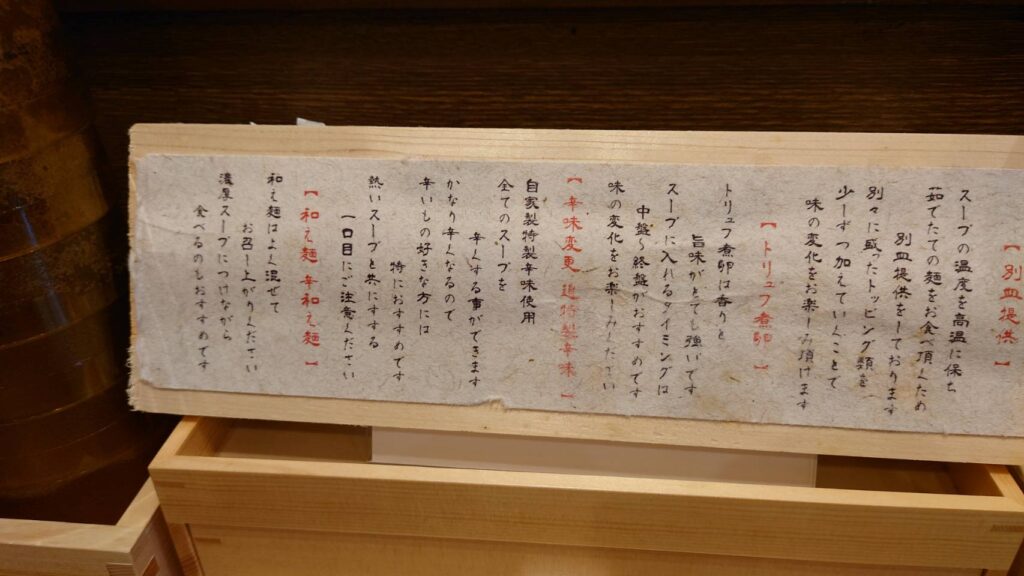 【別皿提供】
スープの温度を高温に保ち
茹でたての麺をお食べ頂くため
別皿提供をしております
別々に盛ったトッピング類を
少しずつ加えていくことで
味の変化をお楽しみ頂けます
【トリュフ煮卵】
トリュフ煮卵は香りと
旨味がとても強いです
スープに入れるタイミングは
中盤〜終盤がおすすめです
味の変化をお楽しみください
【辛味変更 追特製辛味】
自家製特製辛味使用
全てのスープを
辛くする事ができます
かなり辛くなるので
辛いもの好きな方には
特におすすめです
熱いスープと共にすする
一口目にご注意ください
【和え麺 辛和え麺】
和え麺はよく混ぜて
お召し上がりください
濃厚スープにつけながら
食べるのもおすすめです